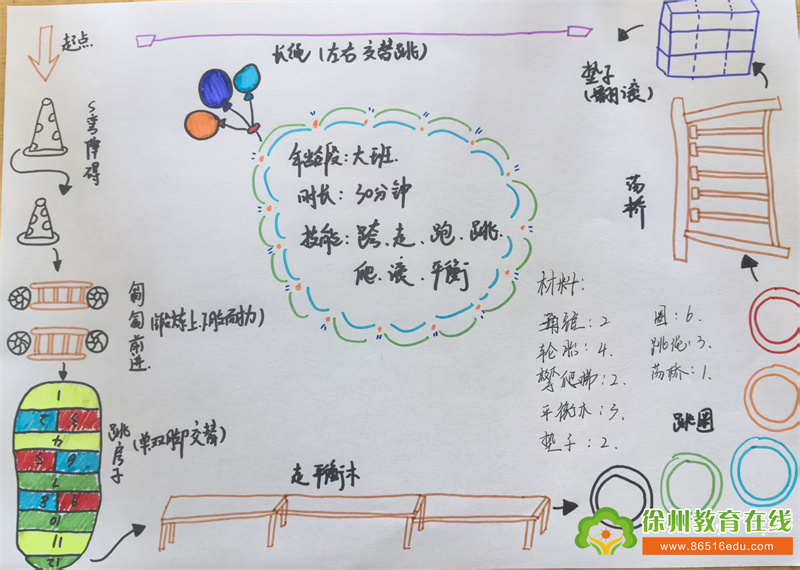 起点
长绳（左右交替跳）
垫子
（翻滚）
S弯障碍
年龄段：大班.
时长：30分钟
技能：跨、走、跑、跳、
爬、滚、平衡
荡桥
匍匐前进.
（锻炼上下肢耐力）
材料：
角锥：2
轮胎：4.
攀爬梯：2.
平衡木：3.
垫子：2.
圈：6.
跳绳：3.
荡桥：1.
跳圈
跳房子
（单双脚交替）
1
2 3
4
5 6
7
8 9
10
11
12
走平衡木
徐州教育在线
www.86516edu.com